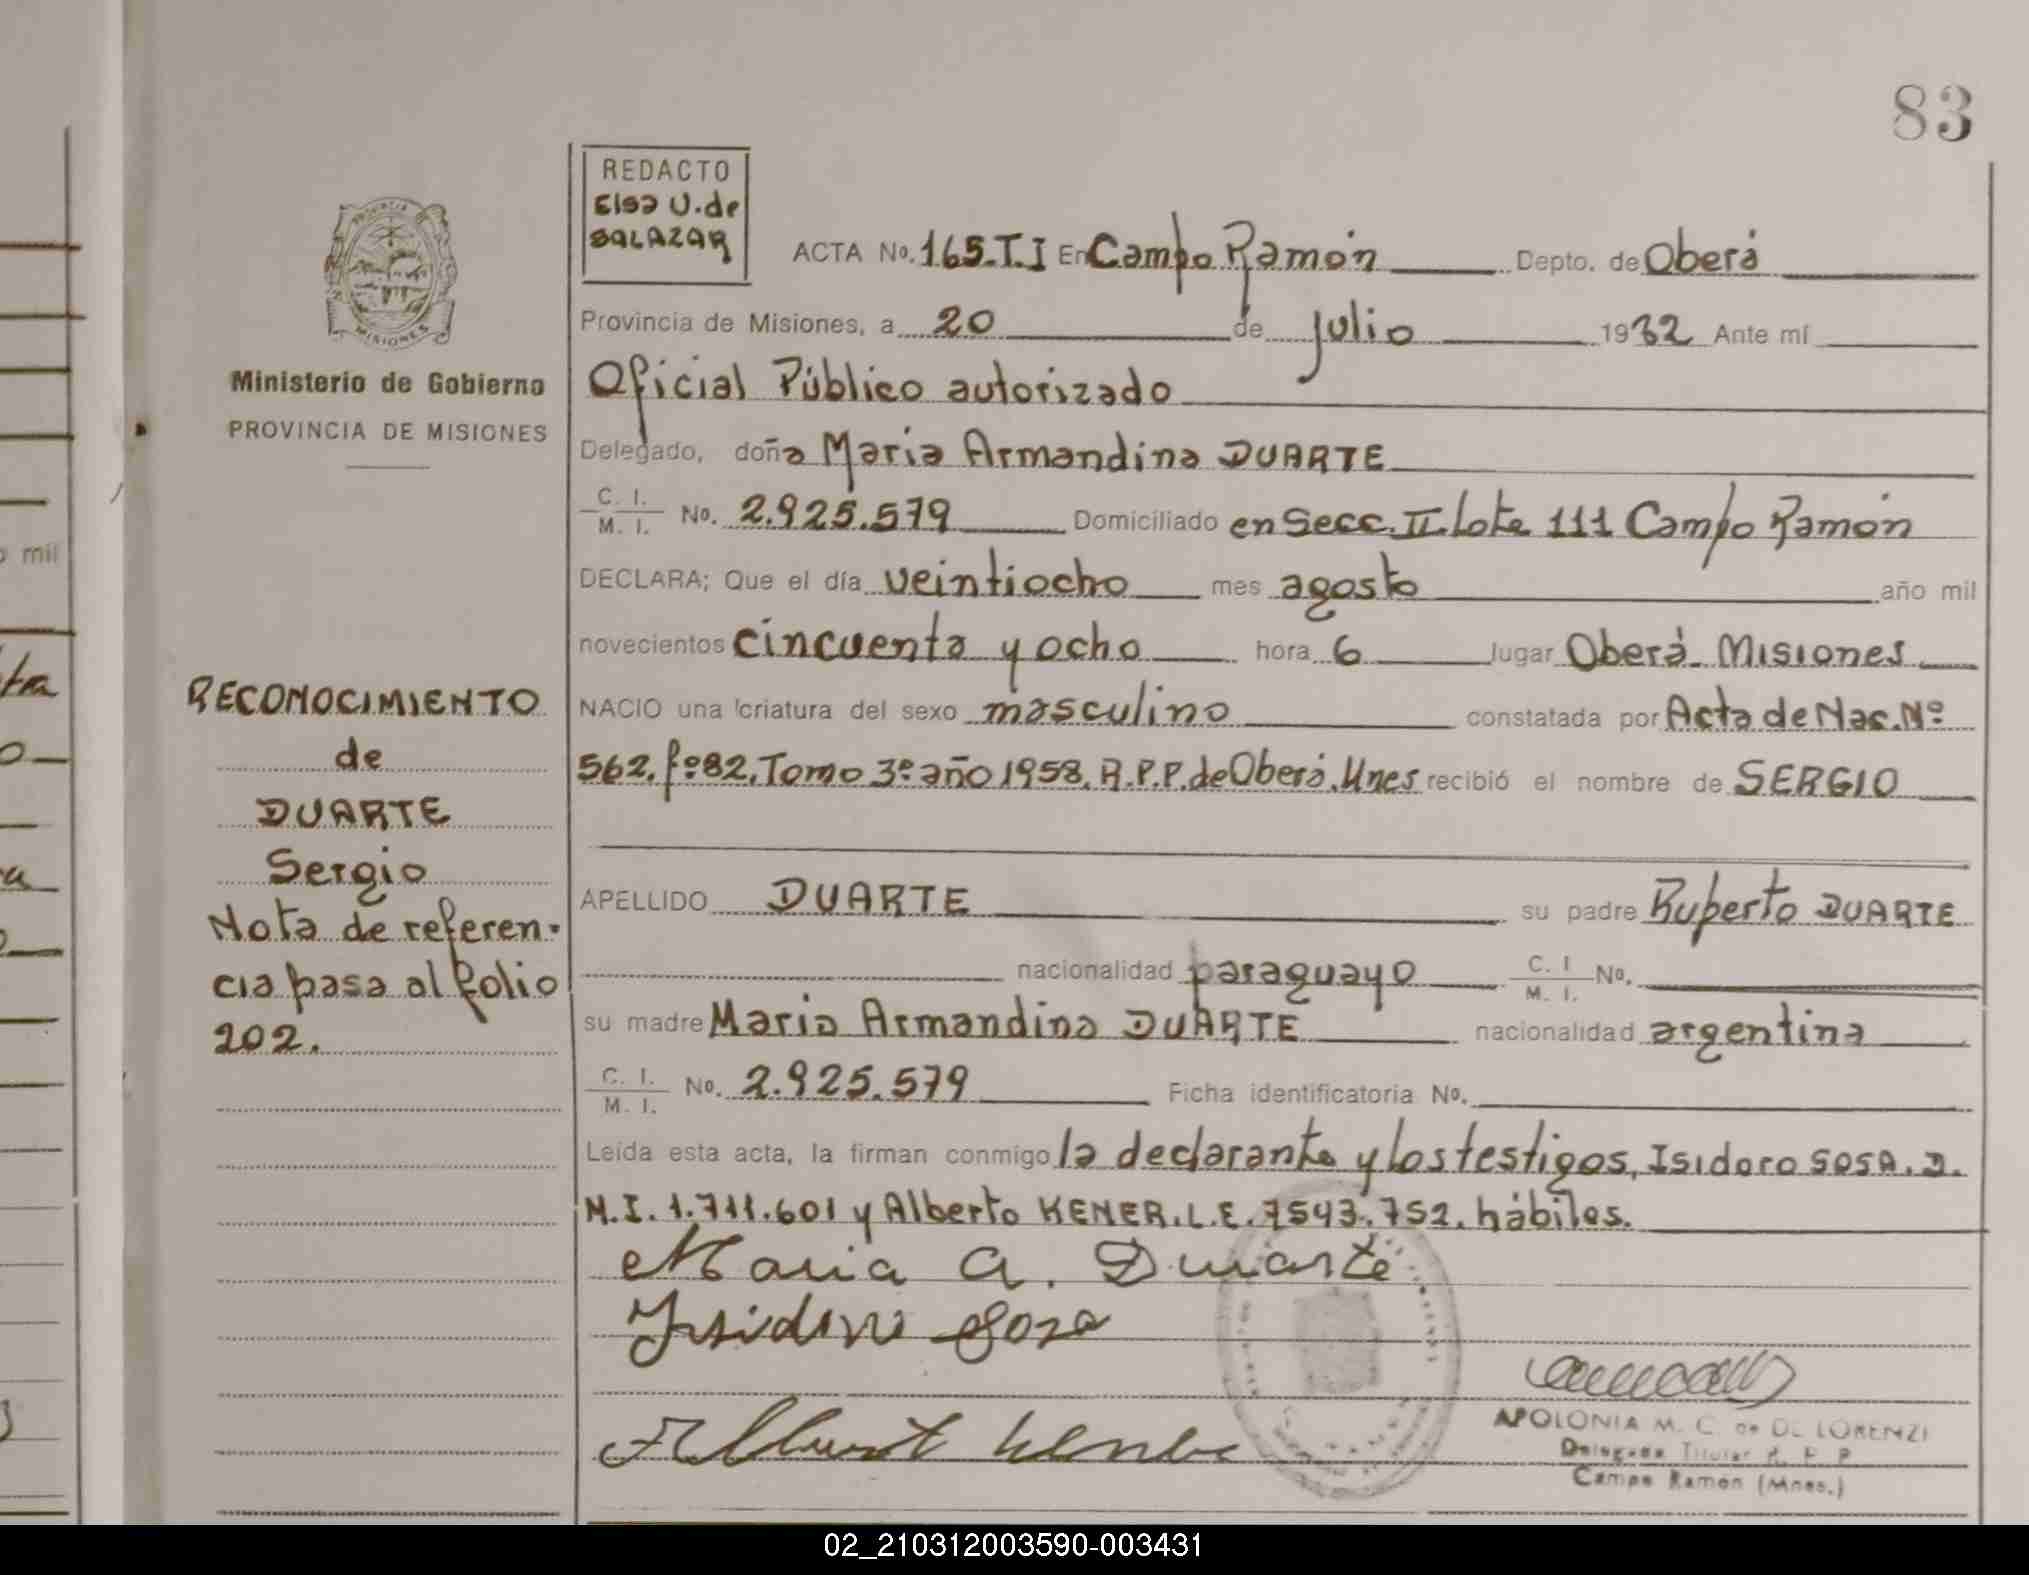 83
REDACTO
Elsa U. de
SALAZAR
ACTA No. 165.T.I En Campo Ramón Depto. de Oberá
PROVINCIA
MISIONES
Provincia de Misiones, a 20 de julio 1982 Ante mí
Ministerio de Gobierno
PROVINCIA DE MISIONES
Oficial Público autorizado
Delegado, doña Maria Armandina DUARTE
C. I.
M. I. No. 2.925.579 Domiciliado en Secc. II Lote 111 Campo Ramón
o mil
DECLARA; Que el día veintiocho mes agosto año mil
novecientos cincuenta y ocho hora 6 lugar Oberá Misiones
NACIO una criatura del sexo masculino constatada por Acta de Nac. Nº
562. fº 82. Tomo 3º año 1958. R.P.P. de Oberá. Mnes recibió el nombre de SERGIO
RECONOCIMIENTO
de
DUARTE
Sergio
Nota de referen-
cia pasa al folio
202.
APELLIDO DUARTE su padre Ruperto DUARTE
nacionalidad paraguayo C. I
M. I. No.
su madre Maria Armandina DUARTE nacionalidad argentina
C. I.
M. I. No. 2.925.579 Ficha identificatoria No.
Leída esta acta, la firman conmigo la declarante y los testigos, Isidoro SOSA. D.
N.I. 1.711.601 y Alberto KENER. L.E. 7543.752. hábiles.
Maria A. Duarte
Isidoro Sosa
APOLONIA M. C. de DE LORENZI
Delegada Titular R. P. P.
Campo Ramon (Mnes.)
02_210312003590-003431